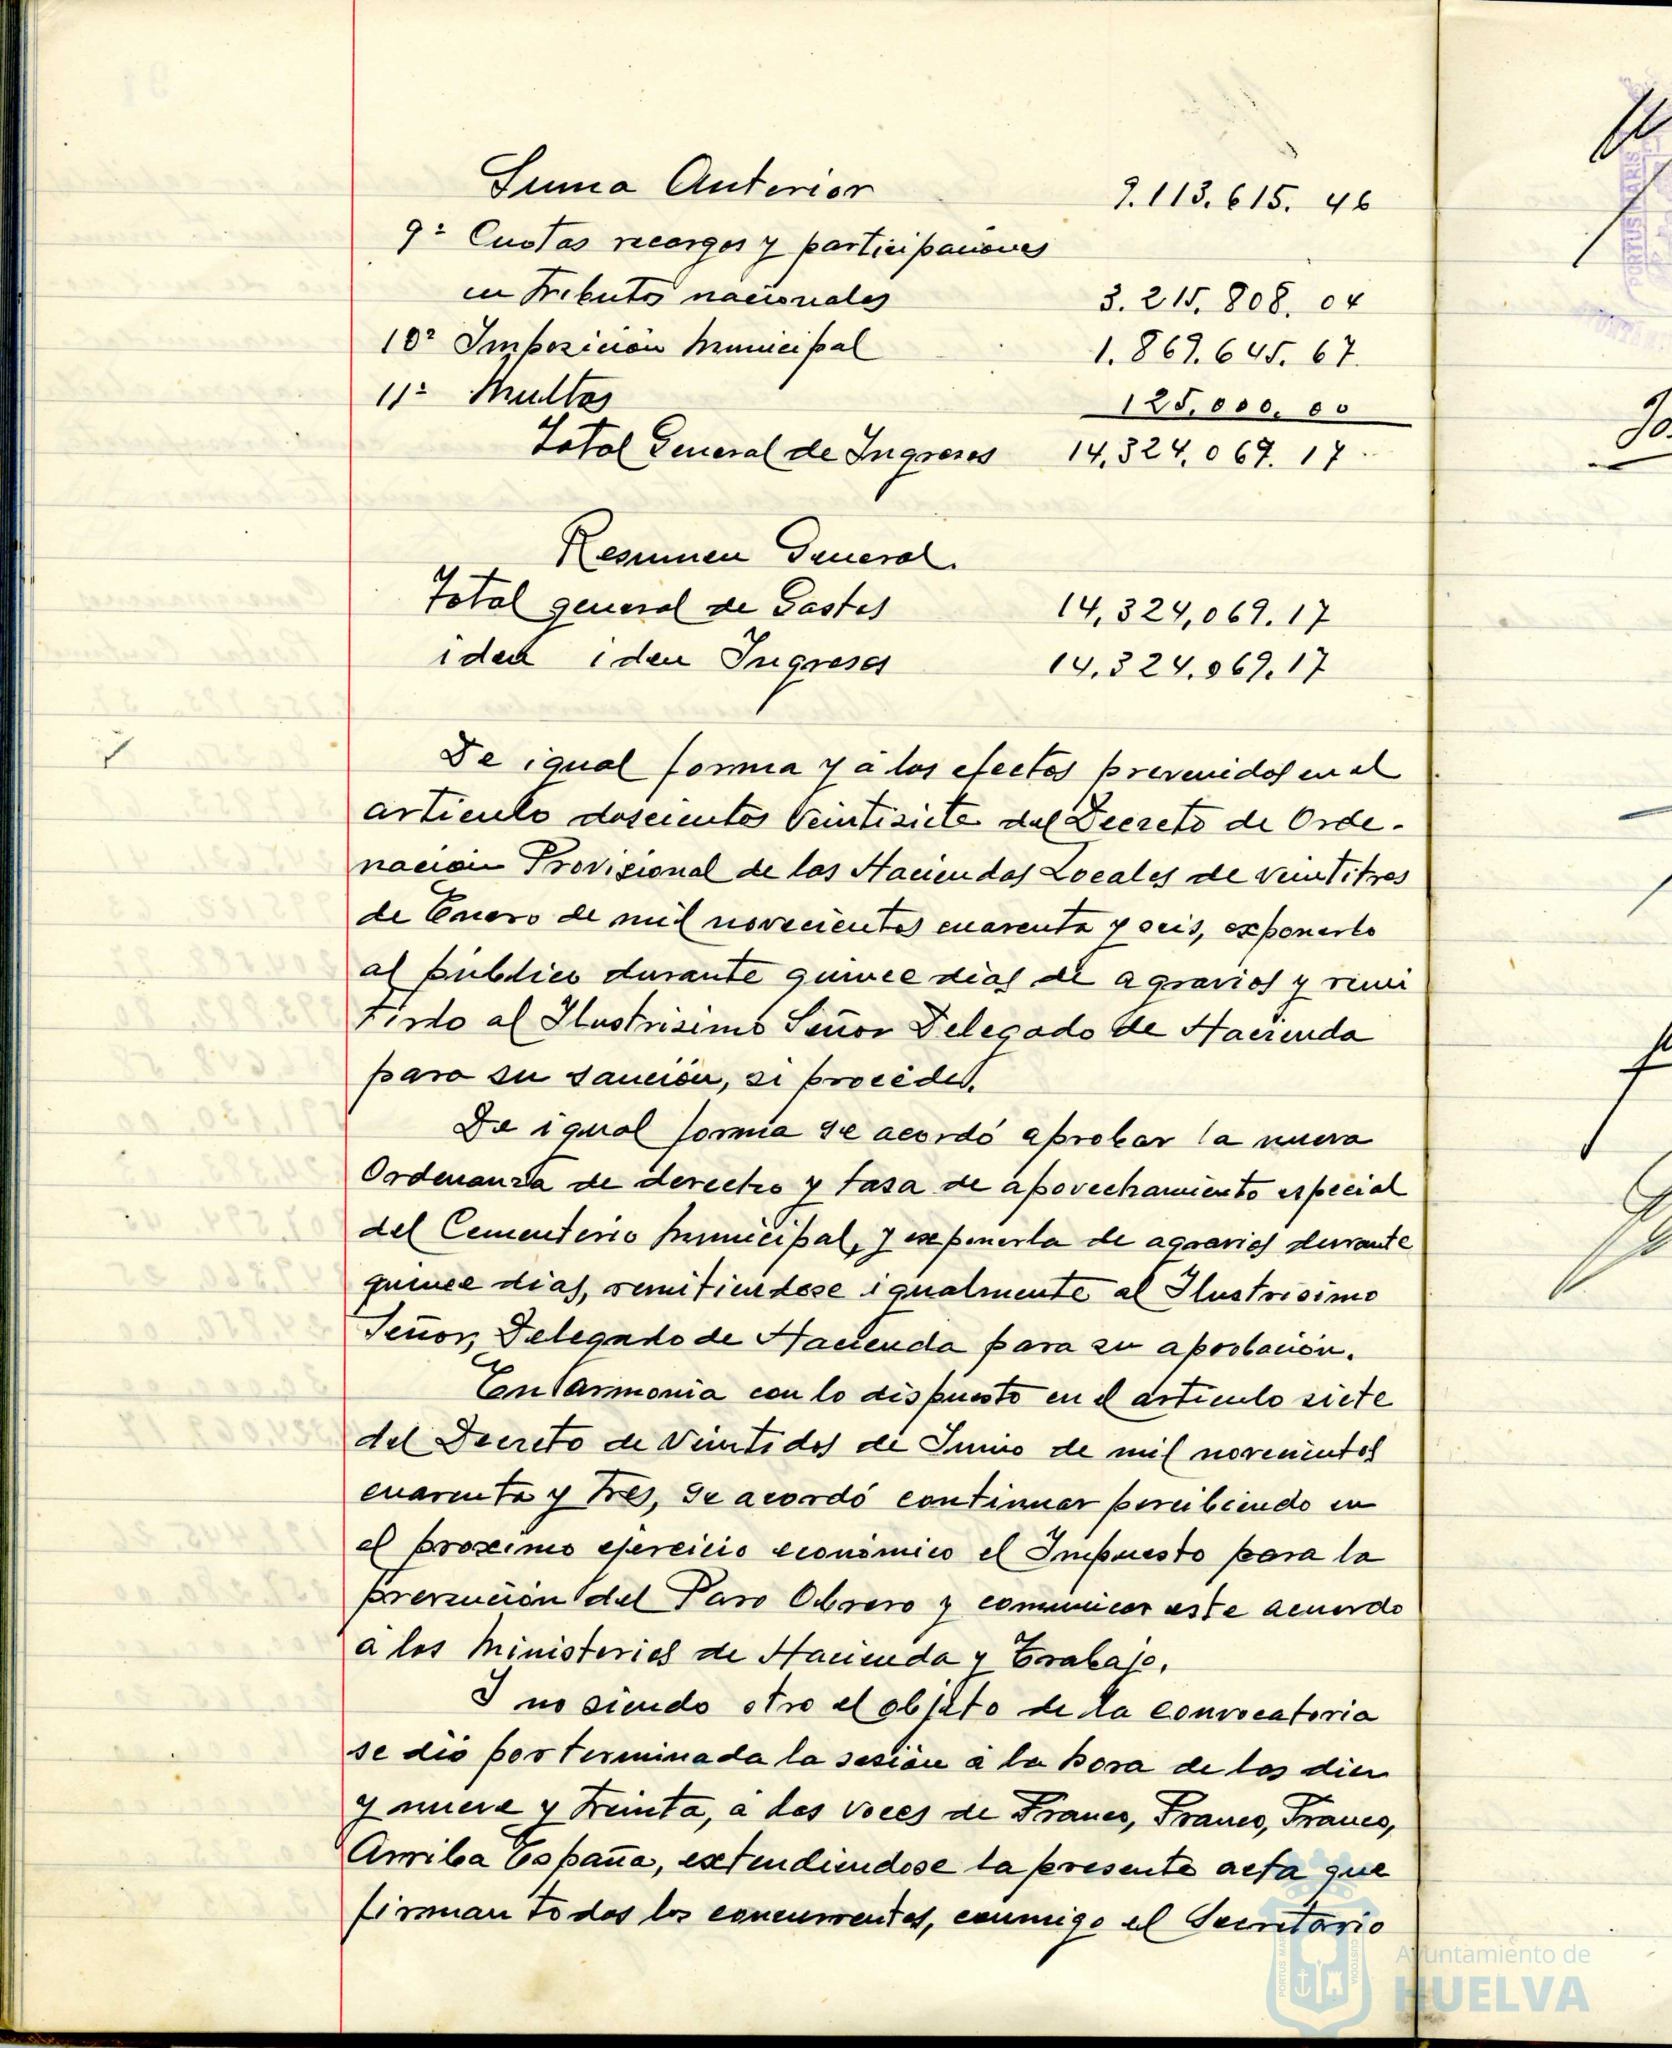 Suma Anterior 9.113.615.46
9º Cuotas recargos y participaciones
en Tributos nacionales 3.215.808.04
10º Imposición Municipal 1.869.645.67
11º Multas 125.000.00
Total General de Ingresos 14.324.069.17
Resumen General.
Total general de Gastos 14,324,069.17
iden iden Ingresos 14.324.069.17
De igual forma y á los efectos prevenidos en el
articulo doscientos veintisiete del Decreto de Orde-
nación Provisional de las Haciendas Locales de veintitres
de Enero de mil novecientos cuarenta y seis, exponerlo
al público durante quince dias de agravios y remi
tirlo al Ilustrisimo Señor Delegado de Hacienda
para su sanción, si procede.
De igual forma se acordó aprobar la nueva
Ordenanza de derecho y tasa de apovechamiento especial
del Cementerio Municipal, y exponerla de agravios durante
quince dias, remitiendose igualmente al Ilustrisimo
Señor, Delegado de Hacienda para su aprobación.
En armonia con lo dispuesto en el articulo siete
del Decreto de Veintidos de Junio de mil novecientos
cuarenta y tres, se acordó continuar percibiendo en
el proximo ejercicio económico el Impuesto para la
prevención del Paro Obrero y comunicar este acuerdo
á los Ministerios de Hacienda y Trabajo.
Y no siendo otro el objeto de la convocatoria
se dió por terminada la sesión á la hora de las diez
y nueve y treinta, á las voces de Franco, Franco, Franco,
Arriba España, extendiendose la presente acta que
firman todos los concurrentes, conmigo el Secretario
Ayuntamiento de
HUELVA